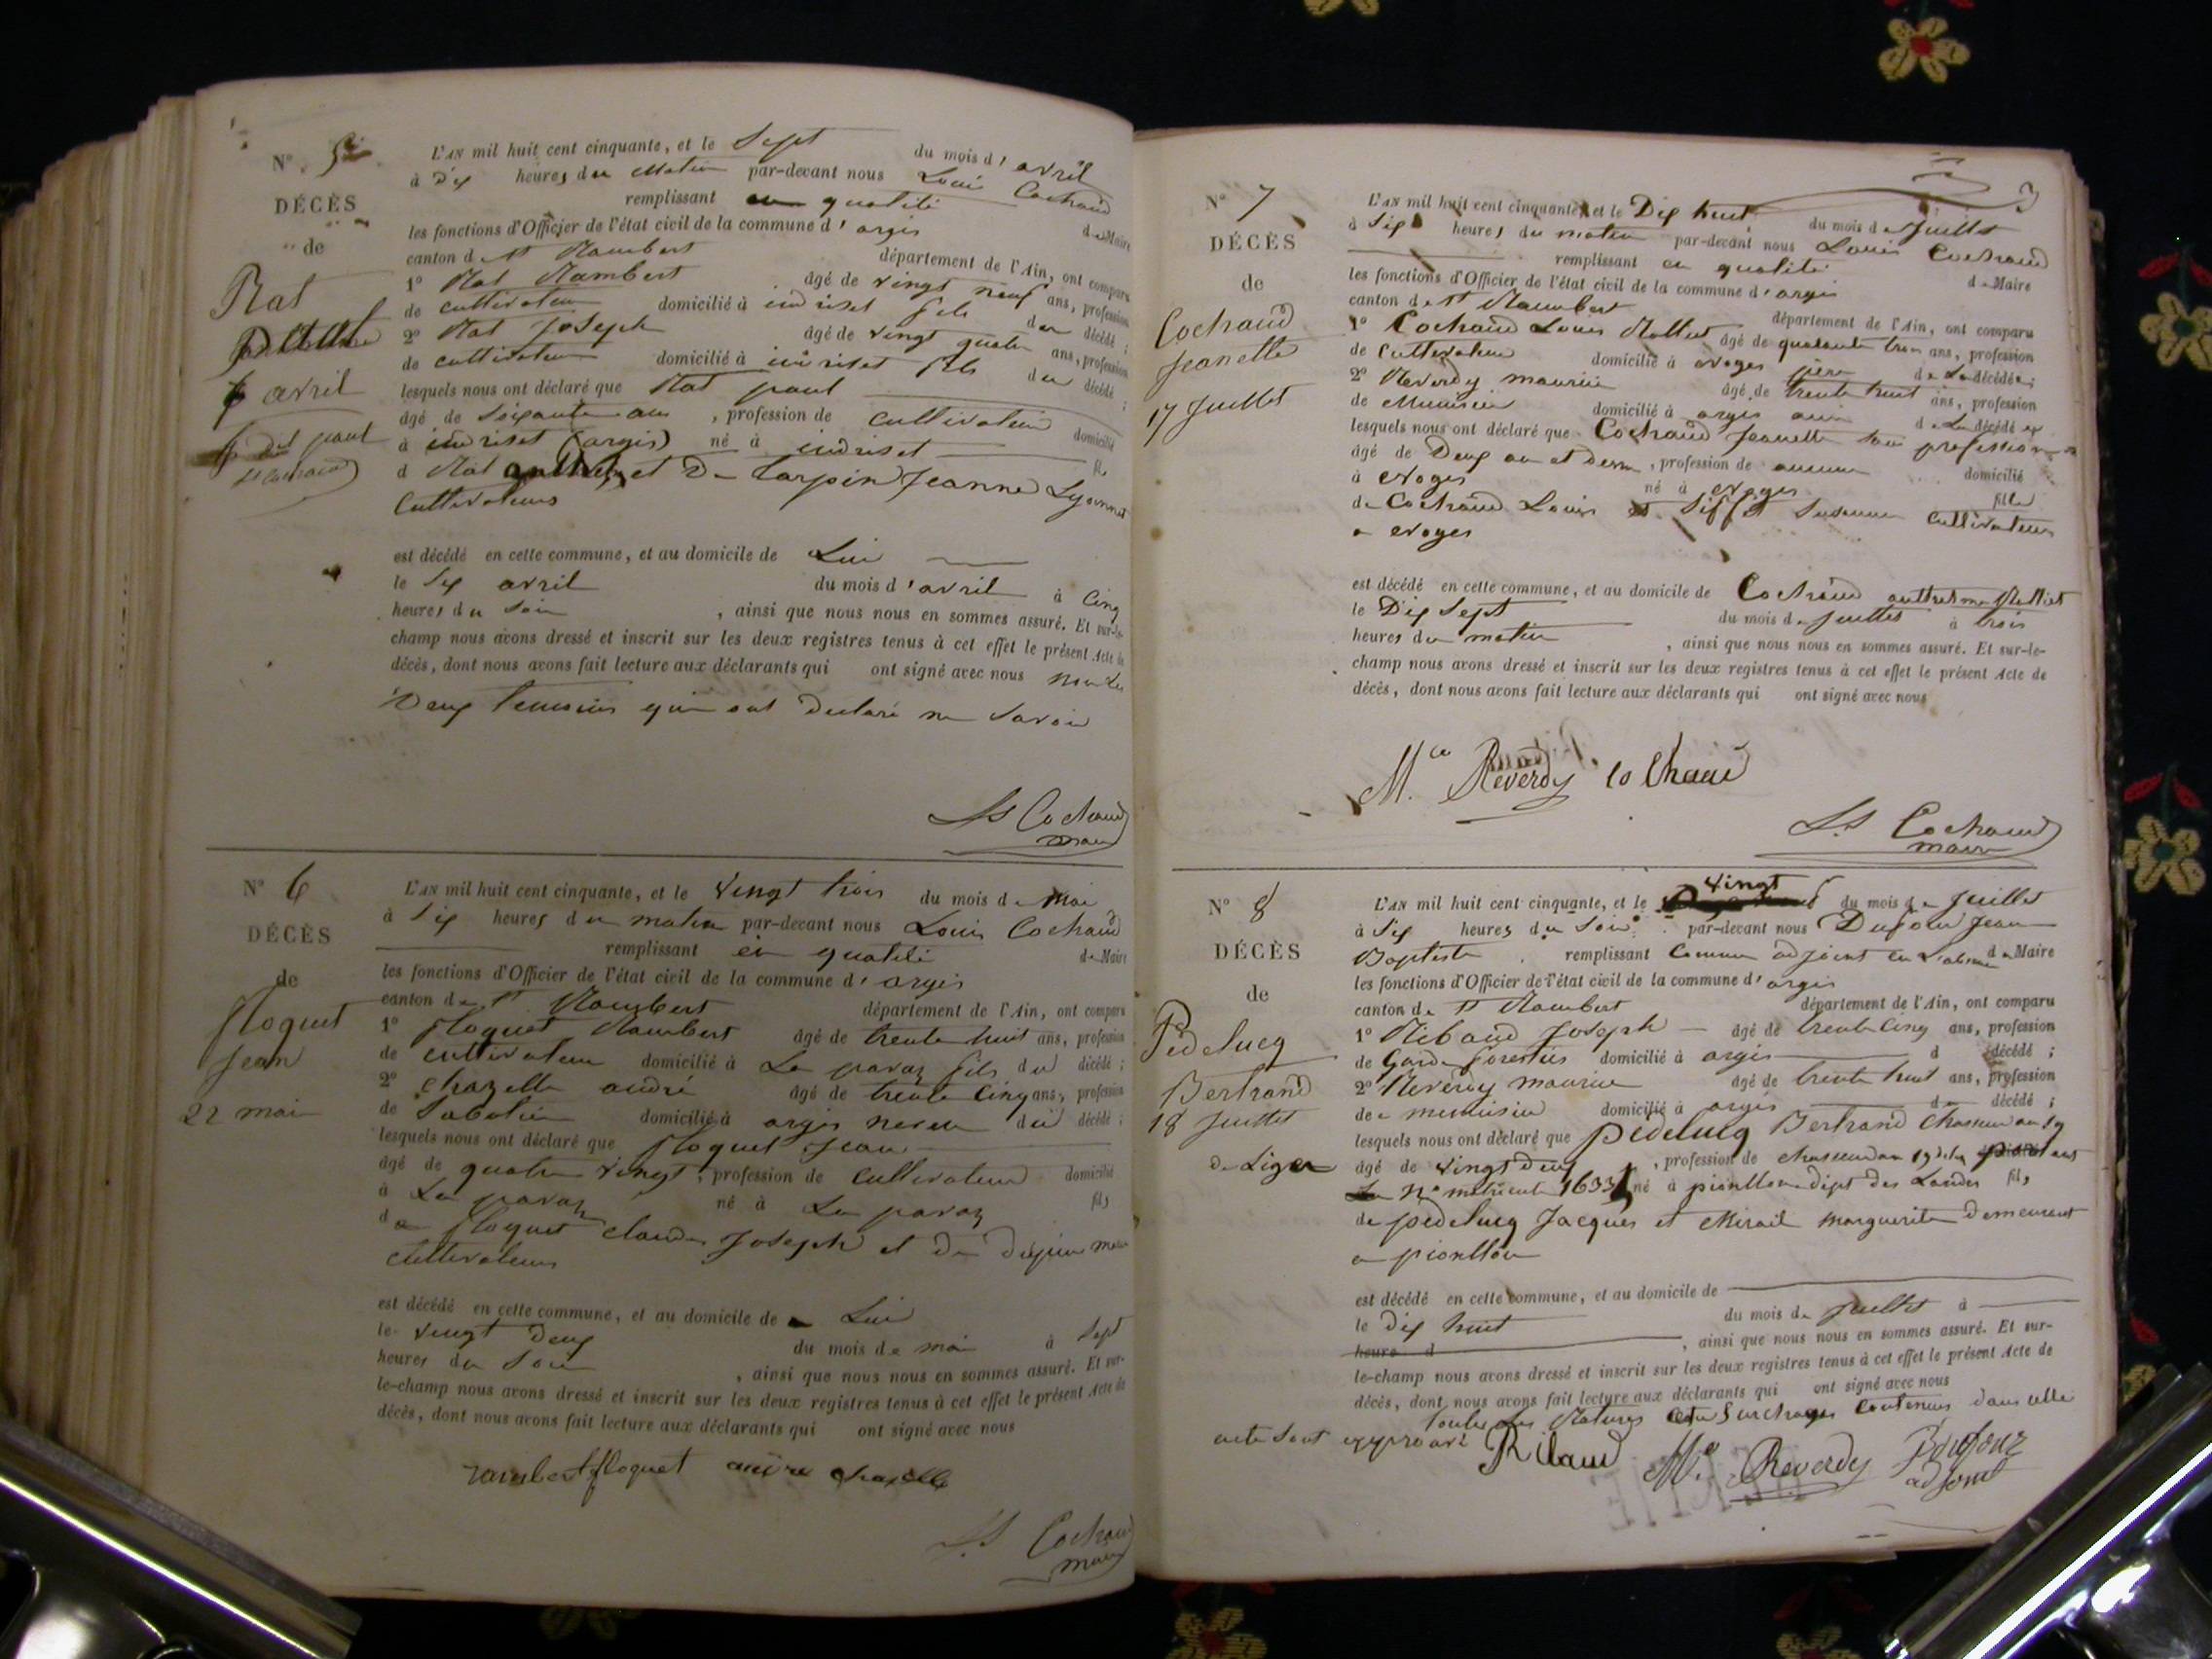 N° 5
DÉCÈS
de
Rat
paul
6 avril
dit paul
L'AN mil huit cent cinquante, et le Sept du mois d'avril
à dix heures du Matin par-devant nous Louis Cochaud
remplissant en qualité de Maire
les fonctions d'Officier de l'état civil de la commune d'argis
canton de St Rambert département de l'Ain, ont comparu
1° Rat Rambert âgé de vingt neuf ans, profession
de cultivateur domicilié à indriset fils du décédé ;
2° Rat Joseph âgé de vingt quatre ans, profession
de cultivateur domicilié à indriset fils du décédé ;
lesquels nous ont déclaré que Rat paul
âgé de Soixante ans, profession de cultivateur domicilié
à indriset (argis) né à indriset fils
d Rat et De Carpin Jeanne Lyonnet
Cultivateurs
est décédé en cette commune, et au domicile de Lui
le Six avril du mois d'avril à Cinq
heures du Soir, ainsi que nous nous en sommes assuré. Et sur-le-
champ nous avons dressé et inscrit sur les deux registres tenus à cet effet le présent Acte de
décès, dont nous avons fait lecture aux déclarants qui ont signé avec nous non Les
Deux temoins qui ont Declaré ne Savoir
Ls Cochaud
maire
N° 6
DÉCÈS
de
floquet
Jean
22 mai
L'AN mil huit cent cinquante, et le Vingt trois du mois de Mai
à Six heures du matin par-devant nous Louis Cochaud
remplissant en qualité de Maire
les fonctions d'Officier de l'état civil de la commune d'argis
canton de St Rambert département de l'Ain, ont comparu
1° floquet Rambert âgé de trente huit ans, profession
de cultivateur domicilié à La pavaz fils du décédé ;
2° Chazelle andré âgé de trente Cinq ans, profession
de Sabotier domicilié à argis neveu du décédé ;
lesquels nous ont déclaré que floquet Jean
âgé de quatre vingt, profession de Cultivateur domicilié
à La pavaz né à La pavaz fils
de floquet Claude Joseph et De
Cultivateurs
est décédé en cette commune, et au domicile de Lui
le vingt Deux du mois de mai à Sept
heures du Soir, ainsi que nous nous en sommes assuré. Et sur-
le-champ nous avons dressé et inscrit sur les deux registres tenus à cet effet le présent Acte de
décès, dont nous avons fait lecture aux déclarants qui ont signé avec nous
rambert floquet andre chazelle
Ls Cochaud
maire
3
N° 7
DÉCÈS
de
Cochaud
Jeanette
17 Juillet
L'AN mil huit cent cinquante, et le Dix huit du mois de Juillet
à Six heures du matin par-devant nous Louis Cochaud
remplissant en qualité de Maire
les fonctions d'Officier de l'état civil de la commune d'argis
canton de St Rambert département de l'Ain, ont comparu
1° Cochaud Louis âgé de quarante trois ans, profession
de Cultivateur domicilié à evoges père de La décédée ;
2° Reverdy maurice âgé de trente huit ans, profession
de Menuisier domicilié à argis ami de La décédée
lesquels nous ont déclaré que Cochaud Jeanette sans profession
âgé de Deux an et demi, profession de aucune domicilié
à evoges né à evoges fille
de Cochaud Louis et Siffet Susanne Cultivateurs
a evoges
est décédé en cette commune, et au domicile de Cochaud
le Dix Sept du mois de Juillet à trois
heures du matin, ainsi que nous nous en sommes assuré. Et sur-le-
champ nous avons dressé et inscrit sur les deux registres tenus à cet effet le présent Acte de
décès, dont nous avons fait lecture aux déclarants qui ont signé avec nous
M.ce Reverdy Cochaud
Ls Cochaud
maire
N° 8
DÉCÈS
de
Pedelucq
Bertrand
18 Juillet
de Liger
L'AN mil huit cent cinquante, et le vingt du mois de Juillet
à Six heures du Soir par-devant nous Dufour Jean
Baptiste remplissant Comme adjoint en L'absence de Maire
les fonctions d'Officier de l'état civil de la commune d'argis
canton de St Rambert département de l'Ain, ont comparu
1° Ribaud Joseph âgé de trente Cinq ans, profession
de Garde forestier domicilié à argis d décédé ;
2° Reverdy maurice âgé de trente huit ans, profession
de menuisier domicilié à argis du décédé ;
lesquels nous ont déclaré que pedelucq Bertrand Chasseur au 19
âgé de vingt deux, profession de chasseur au 19
n° matricule 1633 né à pionllon dept des Landes fils
de pedelucq Jacques et Mirail Marguerite Demeurant
a pionllon
est décédé en cette commune, et au domicile de
le dix huit du mois de Juillet à
heure d, ainsi que nous nous en sommes assuré. Et sur-
le-champ nous avons dressé et inscrit sur les deux registres tenus à cet effet le présent Acte de
décès, dont nous avons fait lecture aux déclarants qui ont signé avec nous
toutes Les Ratures et Surcharges Contenus dans cette
acte Sont approuvé Ribaud M.ce Reverdy Dufour
adjoint